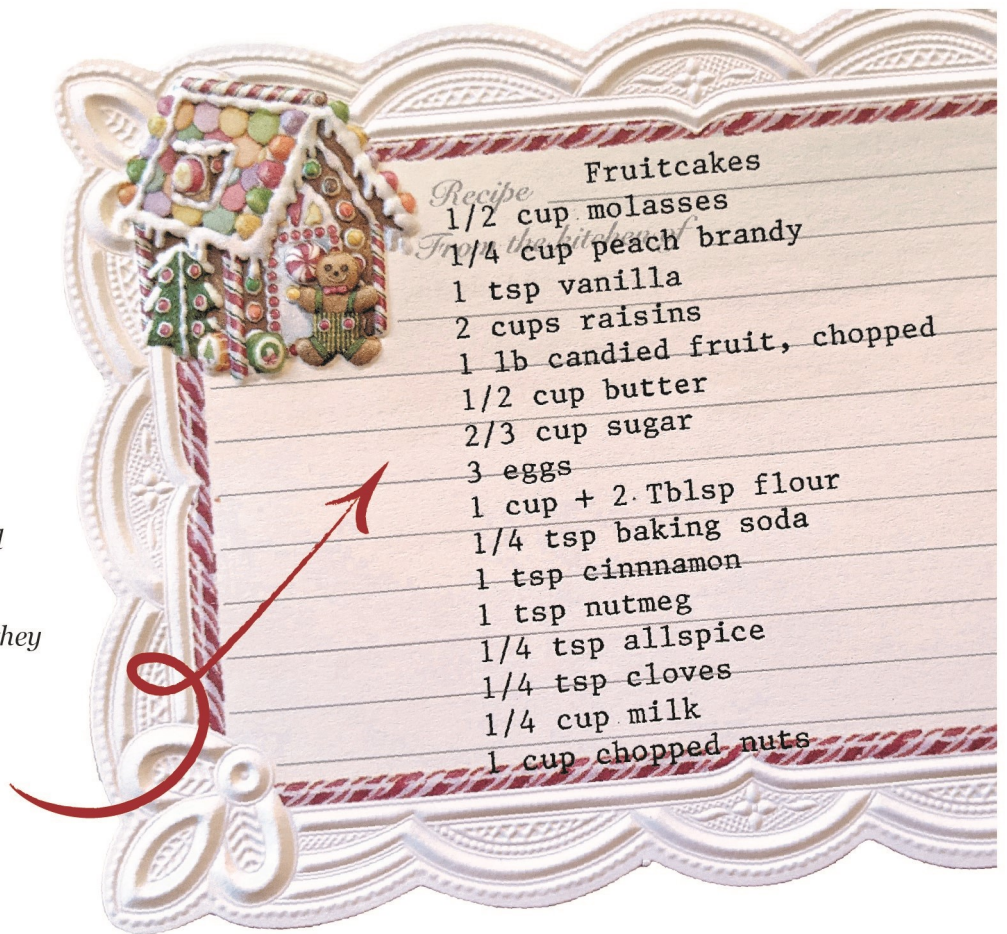 Recipe
Fruitcakes
1/2 cup molasses
From the kitchen of
1/4 cup peach brandy
1 tsp vanilla
2 cups raisins
1 lb candied fruit, chopped
1/2 cup butter
2/3 cup sugar
3 eggs
1 cup + 2 Tblsp flour
1/4 tsp baking soda
1 tsp cinnnamon
1 tsp nutmeg
1/4 tsp allspice
1/4 tsp cloves
1/4 cup milk
1 cup chopped nuts